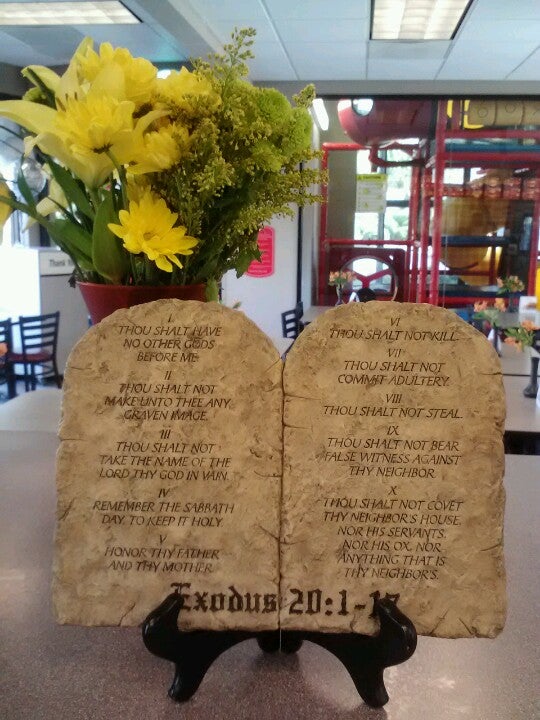 I
THOU SHALT HAVE
NO OTHER GODS
BEFORE ME.
II
THOU SHALT NOT
MAKE UNTO THEE ANY
GRAVEN IMAGE.
III
THOU SHALT NOT
TAKE THE NAME OF THE
LORD THY GOD IN VAIN.
IV
REMEMBER THE SABBATH
DAY, TO KEEP IT HOLY.
V
HONOR THY FATHER
AND THY MOTHER.
VI
THOU SHALT NOT KILL.
VII
THOU SHALT NOT
COMMIT ADULTERY.
VIII
THOU SHALT NOT STEAL.
IX
THOU SHALT NOT BEAR
FALSE WITNESS AGAINST
THY NEIGHBOR.
X
THOU SHALT NOT COVET
THY NEIGHBOR'S HOUSE,
NOR HIS SERVANTS,
NOR HIS OX, NOR
ANYTHING THAT IS
THY NEIGHBOR'S.
Exodus 20:1-17
Thank